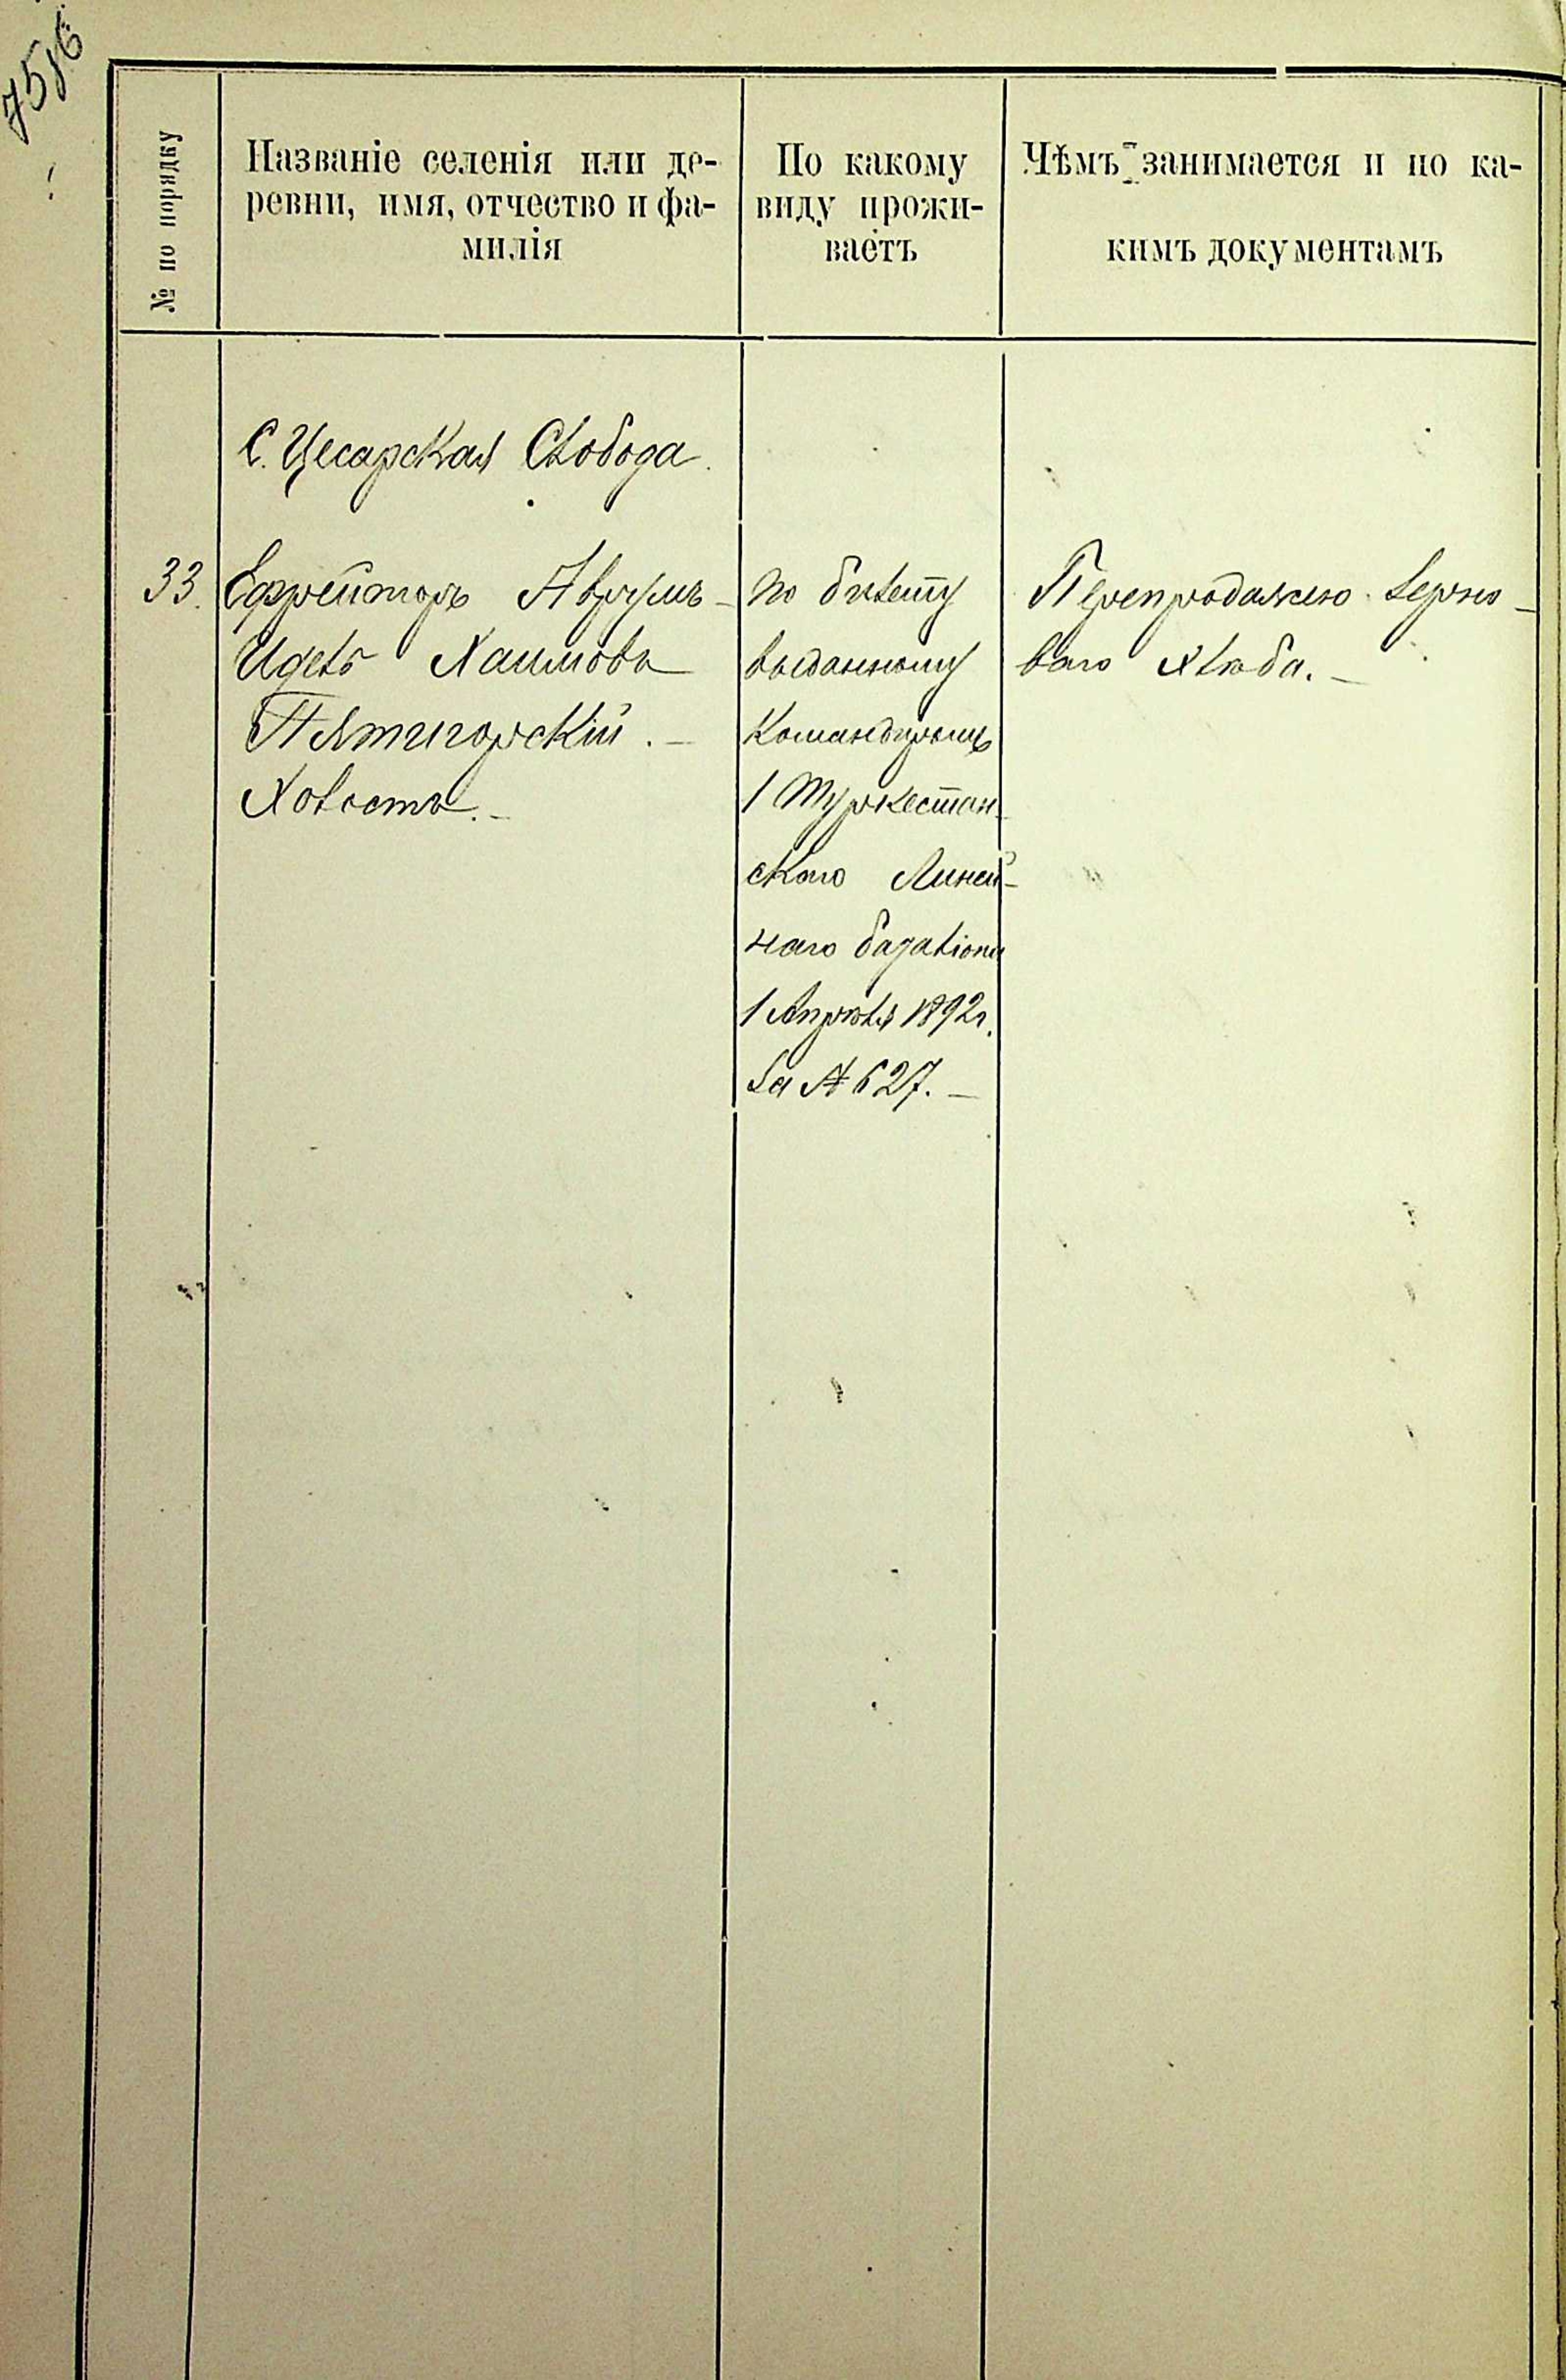 7586
№ по порядку
Названіе селенія или де-
ревни, имя, отчество и фа-
милія
По какому
виду прожи-
ваетъ
Чѣмъ занимается и по ка-
кимъ документамъ
С. Цесарская Слобода.
33. Ефрейторъ Аврумъ-
Идель Хаимовъ
Пятигорскій. –
Холостъ. –
по билету
выданному
Командиромъ
1 Туркестан-
скаго Линей-
наго баталіона
1 Апрѣля 1892 г.
за № 627. –
Перепродажею зерно-
ваго хлѣба. –